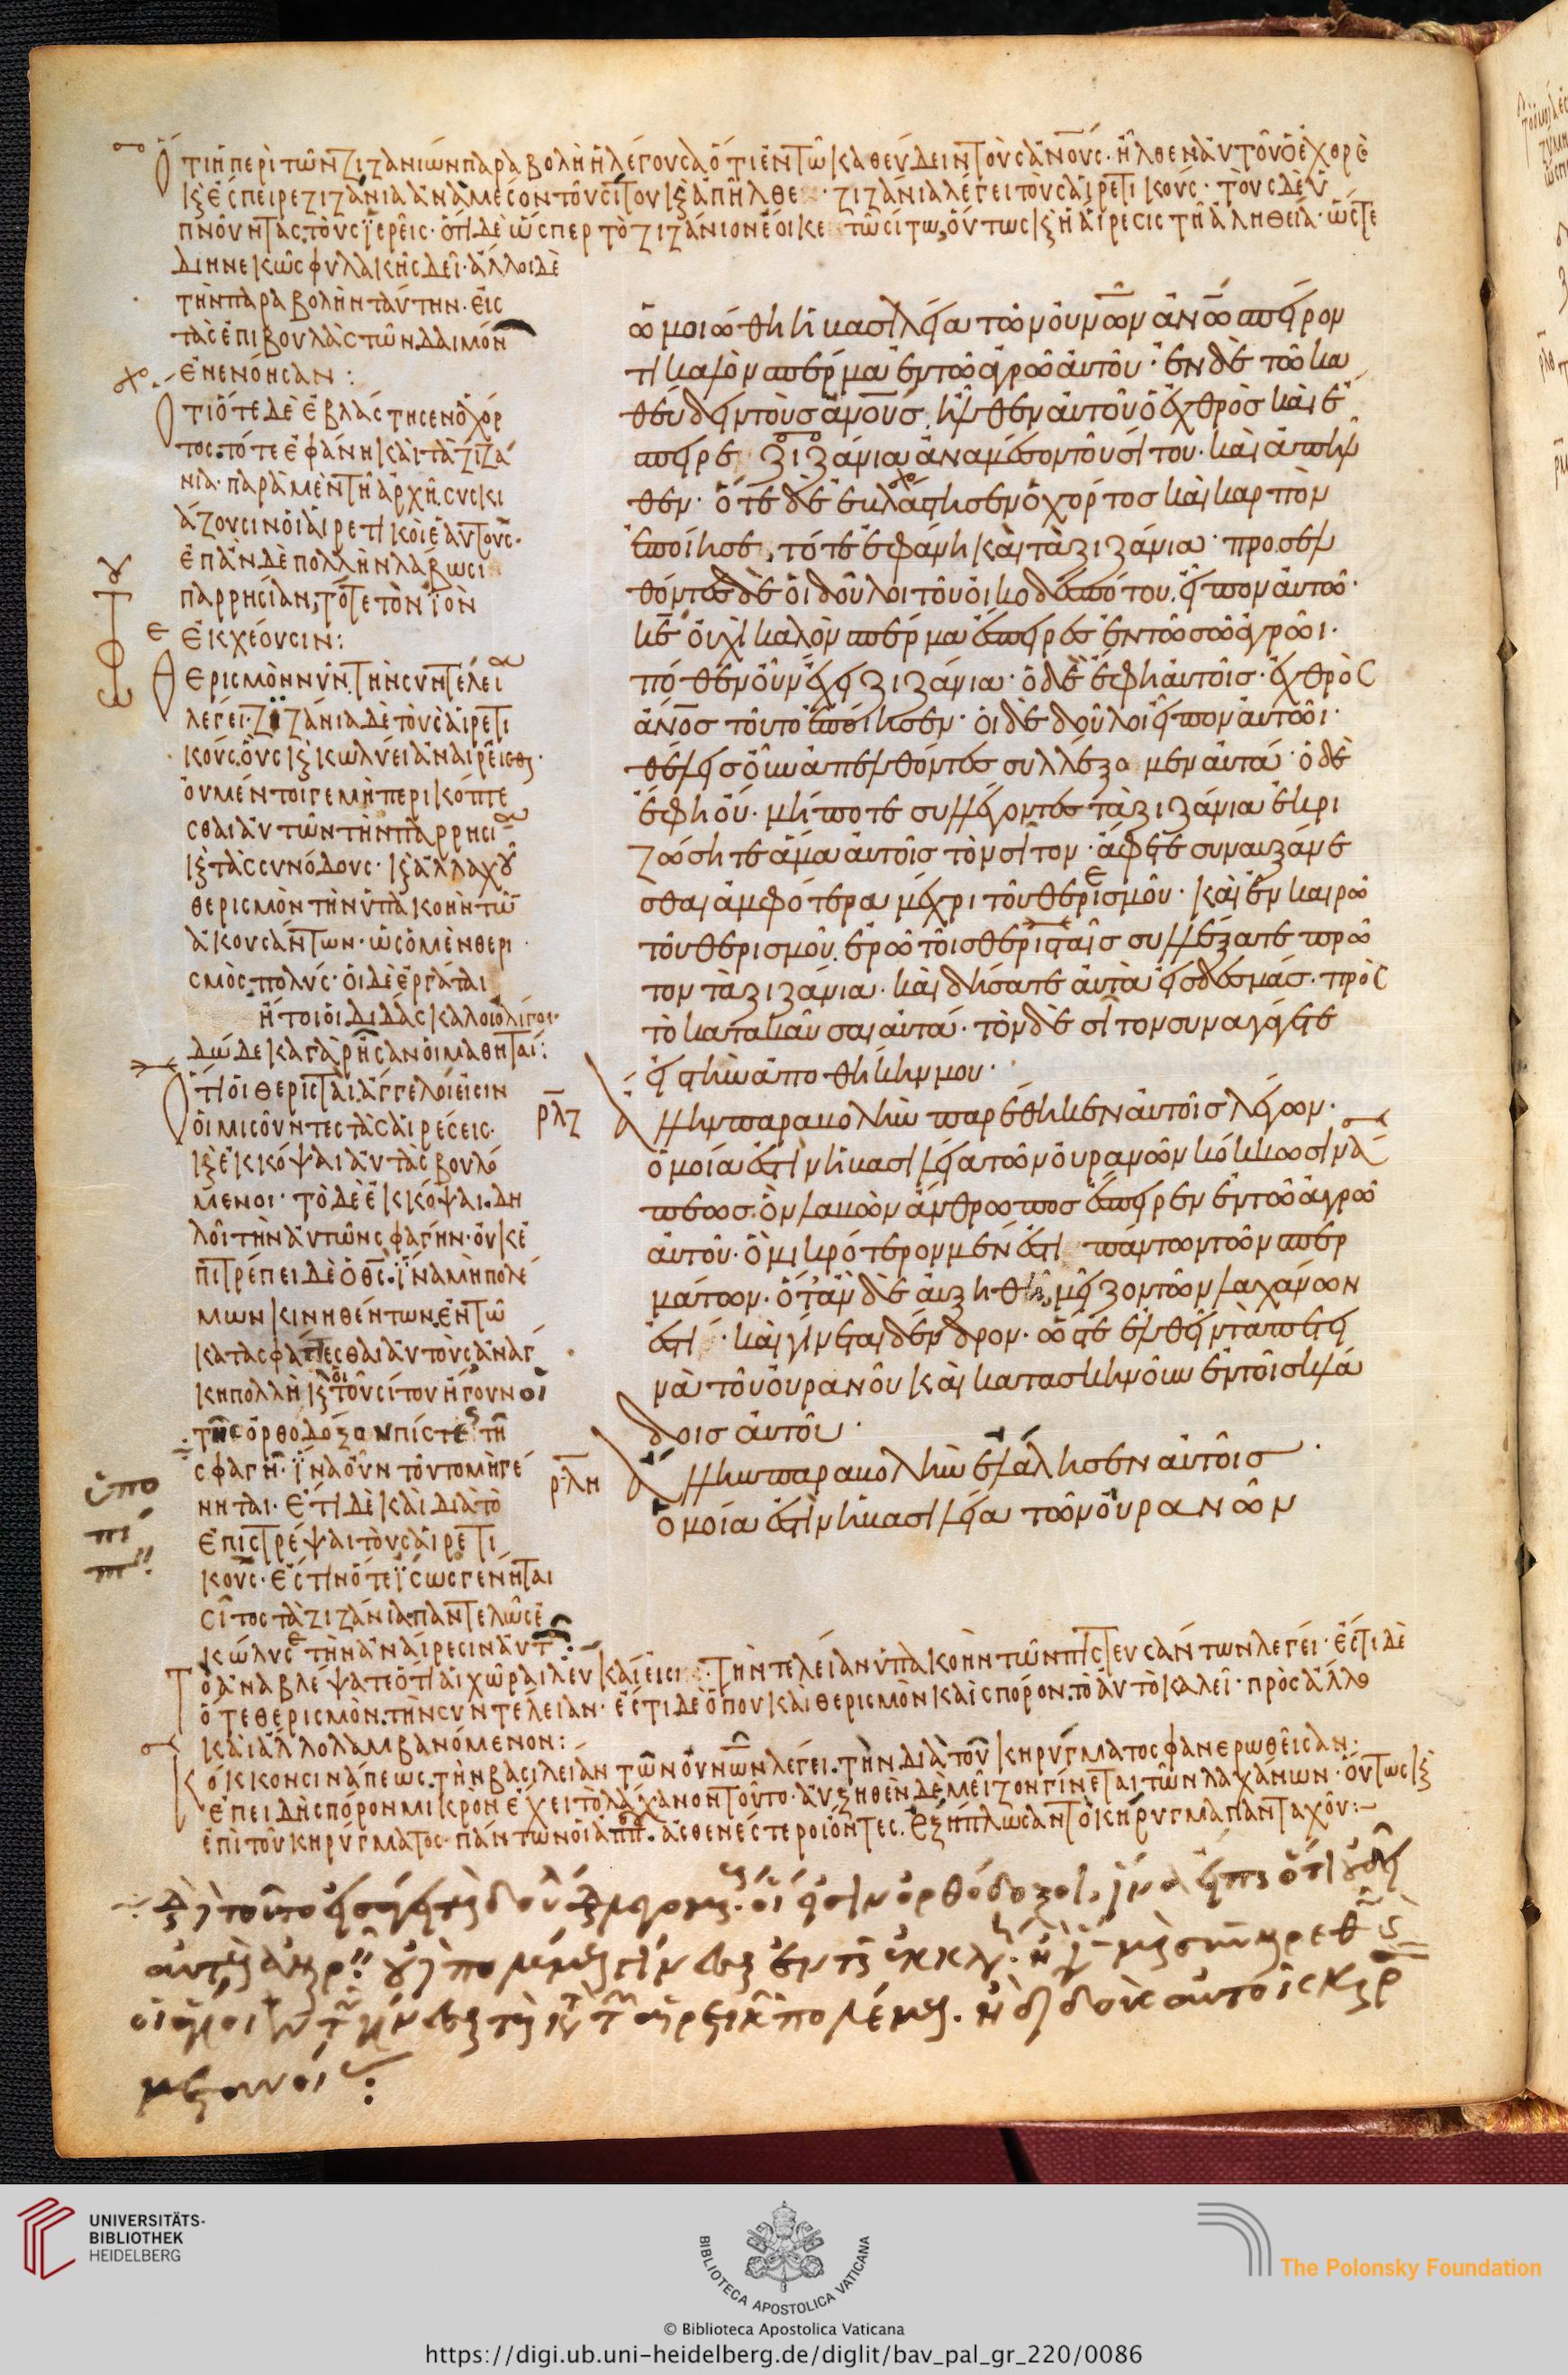 Ὅτι ἡ περὶ τῶν ζιζανίων παραβολὴ ἡ λέγουσα ὅτι ἐν τῶ καθεύδειν τοὺς ἀν̅ους· ἦλθεν αὐτοῦ ὁ ἐχθρὸ
κ̀ ἔσπειρε ζιζάνια ἀνὰ μέσον τοῦ σίτου κ̀ ἀπῆλθε· ζιζάνια λέγει τοὺς αἱρετικούς· τοὺς δὲ ὑ
πνοῦντας, τοὺς ἱερεῖς· ὅτι δὲ ὥσπερ τὸ ζιζάνιον ἔοικε τῶ σίτω, οὕτως κ̀ ἡ αἵρεσις τῆ ἀληθεία· ὥστε
διηνεκῶς φυλακῆς δεῖ· ἄλλοι δὲ
τὴν παραβολὴν ταύτην· εἰς
τὰς ἐπιβουλὰς τῶν δαιμόν
ἐνενόησαν:
Ὅτι ὅτε δὲ ἐβλάστησεν ὁ χόρ
τος· τότε ἐφάνη καὶ τὰ ζιζά
νια· παρὰ μὲν τῆ ἀρχῆ, συσκι
άζουσιν οἱ αἱρετικοὶ ἑαυτούς·
ἐπὰν δὲ πολλὴν λάβωσι
παρρησίαν, τότε τὸν ἰὸν
ἐκχέουσιν:
Θερισμὸν νῦν τὴν συντέλει
λέγει· ζιζάνια δὲ τοὺς αἱρετι
κούς, οὓς κ̀ κωλύει ἀναιρεῖσθ·
οὐ μέν τοι γε μὴ περικόπτε
σθαι αὐτῶν τὴν παρρησι
κ̀ τὰς συνόδους· κ̀ ἀλλαχοῦ
θερισμὸν τὴν ὑπακοὴν τῶ
ἀκουσάντων· ὡς ὁ μὲν θερι
σμὸς πολύς· οἱ δὲ ἐργάται
ἤτοι οἱ διδάσκαλοι ὀλίγοι·
δώδεκα γὰρ ἦσαν οἱ μαθηταί:
Ὅτι οἱ θερισταὶ ἄγγελοι εἰσιν
οἱ μισοῦντες τὰς αἱρέσεις·
κ̀ ἐκκόψαι αὐτὰς βουλό
μενοι· τὸ δὲ ἐκκόψαι, δη
λοῖ τὴν αὐτῶν σφαγήν· οὐκ ἐ
πιτρέπει δὲ ὁ θ̅ς· ἵνα μὴ πολέ
μων κινηθέντων, ἐν τῶ
κατασφάττεσθαι αὐτοὺς ἀνάγ
κη πολλὴ κ̀ τοῦ σίτου ἤγουν οἱ
τῆς ὀρθοδόξου πίστεως τῆ
σφαγῆ· ἵνα οὖν τοῦτο μὴ γέ
νηται· ἔτι δὲ καὶ διὰ τὸ
ἐπιστρέψαι τοὺς αἱρετι
κούς· ἔστιν ὅτε ἴσως γένηται
σῖτος τὰ ζιζάνια, παντελῶς ἐ
κώλυσε τὴν ἀναίρεσιν αὐτ:
ὡμοιώθη ἡ βασιλεία τῶν οὐν̅ῶν ἀν̅ῶ σπείρον
τι καλὸν σπέρμα ἐν τῶ ἀγρῶ αὐτοῦ· ἐν δὲ τῶ κα
θεύδειν τοὺς ἀν̅ους, ἦλθεν αὐτοῦ ὁ ἐχθρὸς καὶ ἔ
σπειρε ζιζάνια ἀνὰ μέσον τοῦ σίτου· καὶ ἀπῆλ
θεν· ὅτε δὲ ἐβλάστησεν ὁ χόρτος καὶ καρπὸν
ἐποίησε, τότε ἐφάνη καὶ τὰ ζιζάνια· προσελ
θόντες δὲ οἱ δοῦλοι τοῦ οἰκοδεσπότου, εἶπον αὐτῶ·
κ̅ε οὐχὶ καλὸν σπέρμα ἔσπειρες ἐν τῶ σῶ ἀγρῶι·
πόθεν οὖν ἔχει ζιζάνια· ὁ δὲ ἔφη αὐτοῖς· ἐχθρὸς
ἄν̅ος τοῦτο ἐποίησεν· οἱ δὲ δοῦλοι εἶπον αὐτῶι·
θέλεις οὖν ἀπελθόντες συλλέξομεν αὐτά· ὁ δὲ
ἔφη οὔ· μήποτε συλλέγοντες τὰ ζιζάνια ἐκρι
ζώσητε ἅμα αὐτοῖς τὸν σῖτον· ἄφετε συναυξάνε
σθαι ἀμφότερα μέχρι τοῦ θερισμοῦ· καὶ ἐν καιρῶ
τοῦ θερισμοῦ, ἐρῶ τοῖς θερισταῖς συλλέξατε πρῶ
τον τὰ ζιζάνια· καὶ δήσατε αὐτὰ εἰς δεσμάς· πρὸς
τὸ κατακαῦσαι αὐτά· τὸν δὲ σῖτον συναγάγετε
εἰς τὴν ἀποθήκην μου·
ρλζ Ἄλλην παραβολὴν παρέθηκεν αὐτοῖς λέγων·
ὁμοία ἐστὶν ἡ βασιλεία τῶν οὐρανῶν κόκκω σινά
πεως· ὃν λαβὼν ἄνθρωπος ἔσπειρεν ἐν τῶ ἀγρῶ
αὐτοῦ· ὃ μικρότερον μὲν ἐστὶ πάντων τῶν σπερ
μάτων· ὅταν δὲ αὐξηθῆ, μεῖζον τῶν λαχάνων
ἐστὶ· καὶ γίνεται δένδρον· ὥστε ἐλθεῖν τὰ πετει
νὰ τοῦ οὐρανοῦ καὶ κατασκηνοῦν ἐν τοῖς κλά
δοις αὐτοῦ·
ρλη Ἄλλην παραβολὴν ἐλάλησεν αὐτοῖς·
Ὁμοία ἐστὶν ἡ βασιλεία τῶν οὐρανῶν
Τὸ ἀναβλέψατε ὅτι αἱ χῶραι λευκαί εἰσι· τὴν τελείαν ὑπακοὴν τῶν πιστευσάντων λέγει· ἔστι δὲ
ὅτε θερισμὸν, τὴν συντέλειαν· ἔστι δὲ ὅπου καὶ θερισμὸν καὶ σπόρον, τὸ αὐτὸ καλεῖ· πρὸς ἄλλο
καὶ ἄλλο λαμβανόμενον:
Κόκκον σινάπεως, τὴν βασιλείαν τῶν οὐνῶν λέγει, τὴν διὰ τοῦ κηρύγματος φανερωθεῖσαν·
ἐπειδὴ σπόρον μικρὸν ἔχει τὸ λάχανον τοῦτο· αὐξηθὲν δὲ μεῖζον γίνεται τῶν λαχάνων· οὕτως κ̀
ἐπὶ τοῦ κηρύγματος· πάντων οἱ ἀππ· ἀσθενέστεροι ὄντες, ἐξήπλωσαν τὸ κήρυγμα πανταχοῦ:
UNIVERSITÄTS-
BIBLIOTHEK
HEIDELBERG
BIBLIOTECA APOSTOLICA VATICANA
The Polonsky Foundation
© Biblioteca Apostolica Vaticana
https://digi.ub.uni-heidelberg.de/diglit/bav_pal_gr_220/0086